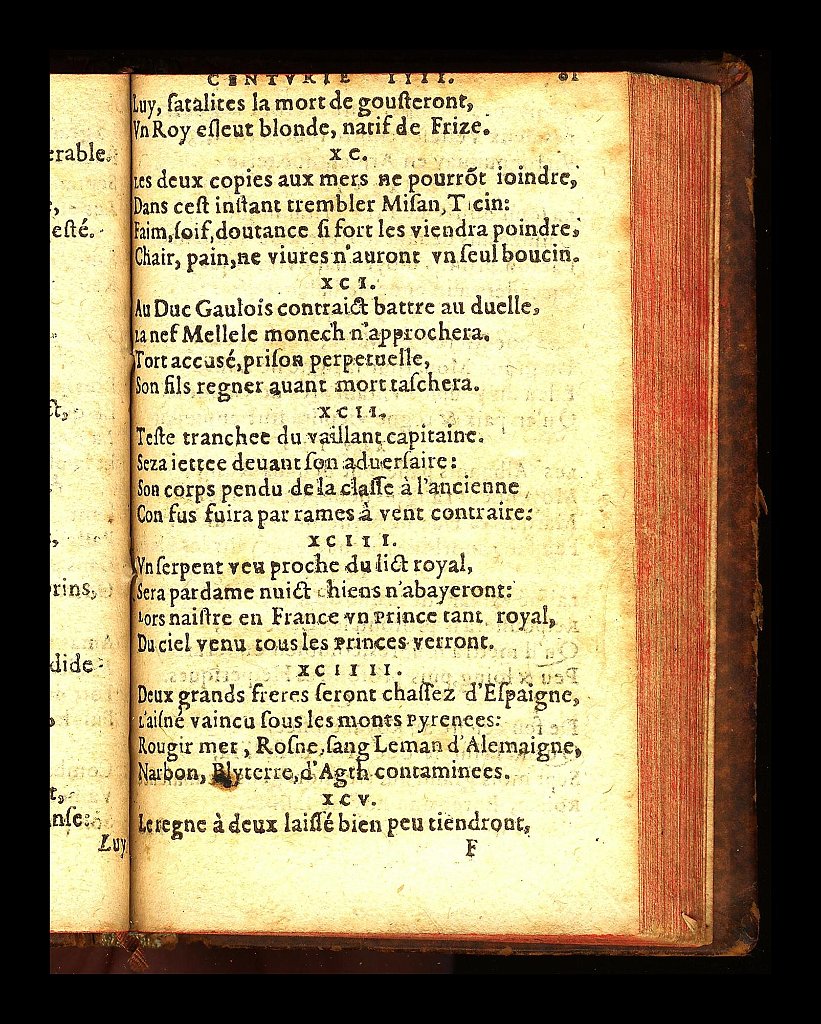 erable.
,
esté.
ct,
,
rins,
dide
t,
nse:
Luy
CENTVRIE IIII. 61
Luy, ſatalites la mort de gouſteront,
Vn Roy eſleut blonde, natif de Frize.
XC.
Les deux copies aux mers ne pourrõt ioindre,
Dans ceſt inſtant trembler Miſan, Ticin:
Faim, ſoif, doutance ſi fort les viendra poindre,
Chair, pain, ne viures n'auront vn ſeul boucin.
XCI.
Au Duc Gaulois contraict battre au duelle,
La nef Mellele monech n'approchera.
Tort accusé, priſon perpetuelle,
Son fils regner auant mort taſchera.
XCII.
Teſte tranchee du vaillant capitaine.
Seza iettee deuant ſon aduerſaire:
Son corps pendu de la claſſe à l'ancienne
Con fus fuira par rames à vent contraire:
XCIII.
Vn ſerpent veu proche du lict royal,
Sera par dame nuict chiens n'abayeront:
Lors naiſtre en France vn Prince tant royal,
Du ciel venu tous les Princes verront.
XCIIII.
Deux grands freres ſeront chaſſez d'Eſpaigne,
L'aiſné vaincu ſous les monts Pyrenees:
Rougir mer, Roſne, ſang Leman d'Alemaigne,
Narbon, Blyterre, d'Agth contaminees.
XCV.
Le regne à deux laiſſé bien peu tiendront,
F